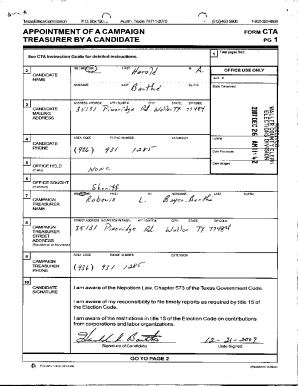 Texas Ethics Commission P.O. Box 12070 Austin, Texas 78711-2070 (512)463-5800 1-800-325-8506
APPOINTMENT OF A CAMPAIGN TREASURER BY A CANDIDATE
FORM CTA
PG 1
See CTA Instruction Guide for detailed instructions.
1 Total pages filed:
2 CANDIDATE NAME
FIRST MI
Harold A.
NICKNAME LAST SUFFIX
Barthe
OFFICE USE ONLY
Date Received
3 CANDIDATE MAILING ADDRESS
ADDRESS CITY STATE ZIP CODE
35131 Pineridge Rd Waller TX 77484
2007 DEC 26 AM 11:42
ELECTION DIVISION
4 CANDIDATE PHONE
AREA CODE PHONE NUMBER EXTENSION
(936) 931 1285
Date Processed
5 OFFICE HELD
NONE
Date Imaged
6 OFFICE SOUGHT
Sheriff
7 CAMPAIGN TREASURER NAME
FIRST MI NICKNAME LAST SUFFIX
Roberta L.
8 CAMPAIGN TREASURER STREET ADDRESS
(Residence or business)
STREET ADDRESS CITY STATE ZIP CODE
35131 Pineridge Rd Waller TX 77484
9 CAMPAIGN TREASURER PHONE
AREA CODE PHONE NUMBER EXTENSION
(936) 931 1285
10 CANDIDATE SIGNATURE
I am aware of the Nepotism Law, Chapter 573 of the Texas Government Code.
I am aware of my responsibility to file timely reports as required by title 15 of the Election Code.
I am aware of the restrictions in title 15 of the Election Code on contributions from corporations and labor organizations.
12-21-2007
Signature of Candidate Date Signed
GO TO PAGE 2